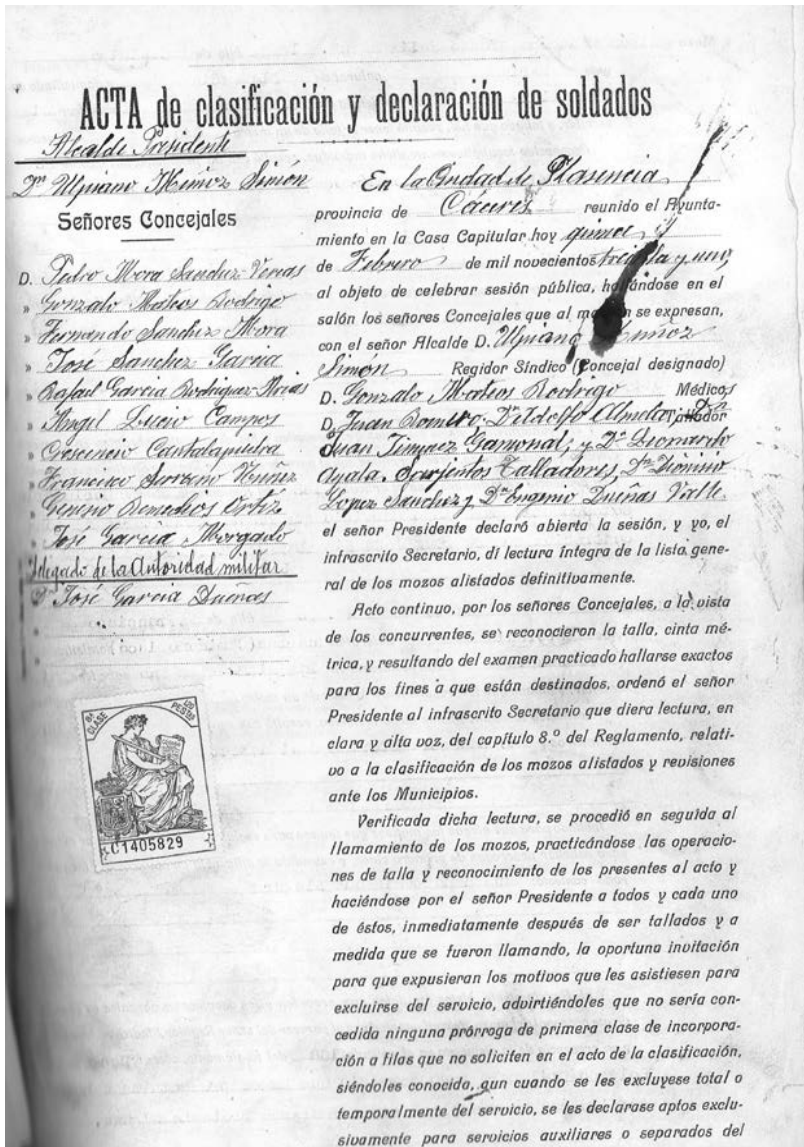 ACTA de clasificación y declaración de soldados
Alcalde Presidente
Dn Ulpiano Muñoz Simón
Señores Concejales
D. Pedro Mora Sanchez-Veras
» Gonzalo Mateos Rodrigo
» Fernando Sanchez Mora
» José Sanchez Garcia
» Rafael Garcia Rodriguez-Arias
» Angel Lucio Campos
» Crescencio Cantalapiedra
» Francisco Serrano Nuñez
» Remedios Ortiz
» José Garcia Morgado
delegado de la Autoridad militar
D José Garcia Dueñas
6ª CLASE
PESETA
C1405829
En la Ciudad de Plasencia
provincia de Cáceres reunido el Ayunta-
miento en la Casa Capitular hoy quince
de Febrero de mil novecientos treinta y uno,
al objeto de celebrar sesión pública, hallándose en el
salón los señores Concejales que al margen se expresan,
con el señor Alcalde D. Ulpiano Muñoz
Simón Regidor Síndico (Concejal designado)
D. Gonzalo Mateos Rodrigo Médicos
D. Juan Romero, Dn Adolfo Tallador Dn
Juan Jimenez Gamonal, y Dn Leonardo
Ayala. Sarjentos Talladores, Dn Dionisio
Lopez Sanchez y Dn Eugenio Dueñas Valle.
el señor Presidente declaró abierta la sesión, y yo, el
infrascrito Secretario, dí lectura íntegra de la lista gene-
ral de los mozos alistados definitivamente.
Acto continuo, por los señores Concejales, a la vista
de los concurrentes, se reconocieron la talla, cinta mé-
trica, y resultando del examen practicado hallarse exactos
para los fines a que están destinados, ordenó el señor
Presidente al infrascrito Secretario que diera lectura, en
clara y alta voz, del capítulo 8.º del Reglamento, relati-
vo a la clasificación de los mozos alistados y revisiones
ante los Municipios.
Verificada dicha lectura, se procedió en seguida al
llamamiento de los mozos, practicándose las operacio-
nes de talla y reconocimiento de los presentes al acto y
haciéndose por el señor Presidente a todos y cada uno
de éstos, inmediatamente después de ser tallados y a
medida que se fueron llamando, la oportuna invitación
para que expusieran los motivos que les asistiesen para
excluirse del servicio, advirtiéndoles que no sería con-
cedida ninguna prórroga de primera clase de incorpora-
ción a filas que no soliciten en el acto de la clasificación,
siéndoles conocida, aun cuando se les excluyese total o
temporalmente del servicio, se les declarase aptos exclu-
sivamente para servicios auxiliares o separados del